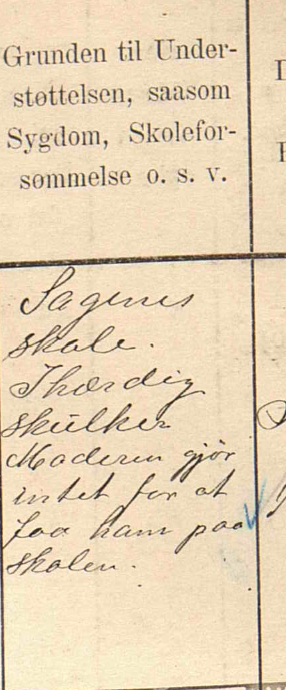 Grunden til Under-
støttelsen, saasom
Sygdom, Skolefor-
sømmelse o. s. v.
Sagenes
skole.
Ihærdig
skulker
Moderen gjør
intet for at
faa ham paa
skolen.